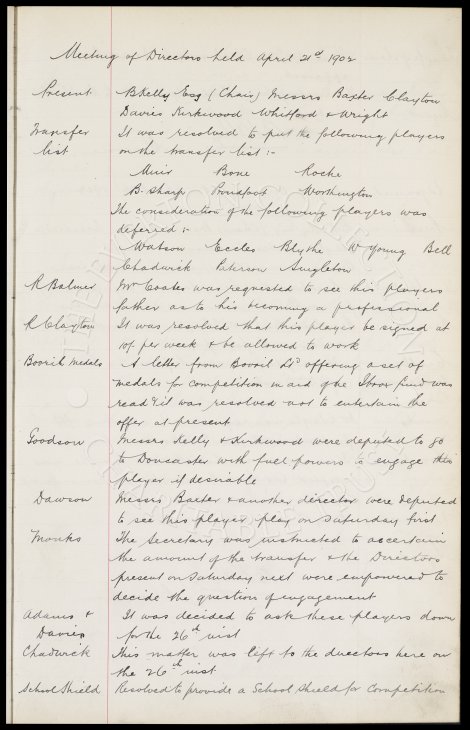 Meeting of Directors held April 21st 1902
Present B Kelly Esq (Chair) Messrs Baxter Clayton
Davies Kirkwood Whitford & Wright
Transfer It was resolved to put the following players
list on the transfer list :-
Muir Bone Roche
B. Sharp Proudfoot Worthington
The consideration of the following players was
deferred :-
Watson Eccles Blythe W Young Bell
Chadwick Paterson Singleton
R Balmer Mr Coates was requested to see this players
father as to his becoming a professional
R Clayton It was resolved that this player be signed at
10/- per week & be allowed to work
Bovril medals A letter from Bovril Ltd offering a set of
medals for competition in aid of the Ibrox fund was
read & it was resolved not to entertain the
offer at present
Goodson Messrs Kelly & Kirkwood were deputed to go
to Doncaster with full powers to engage this
player if desirable
Dawson Messrs Baxter & another director were deputed
to see this player play on Saturday first
Monks The Secretary was instructed to ascertain
the amount of the transfer & the Directors
present on Saturday next were empowered to
decide the question of engagement
Adams & It was decided to ask these players down
Davies for the 26th inst
Chadwick This matter was left to the directors here on
the 26th inst
School Shield Resolved to provide a School Shield for Competition